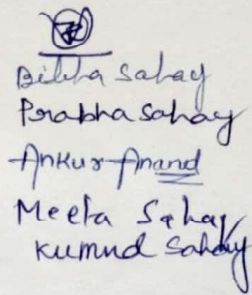 Bibha Sahay
Prabha Sahay
Ankur Anand
Meeta Sahay
Kumud Sahay